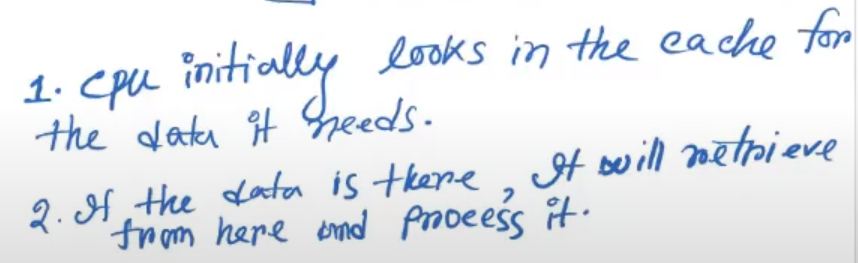 1. CPU initially looks in the cache for
the data it needs.
2. If the data is there, It will retrieve
from here and process it.